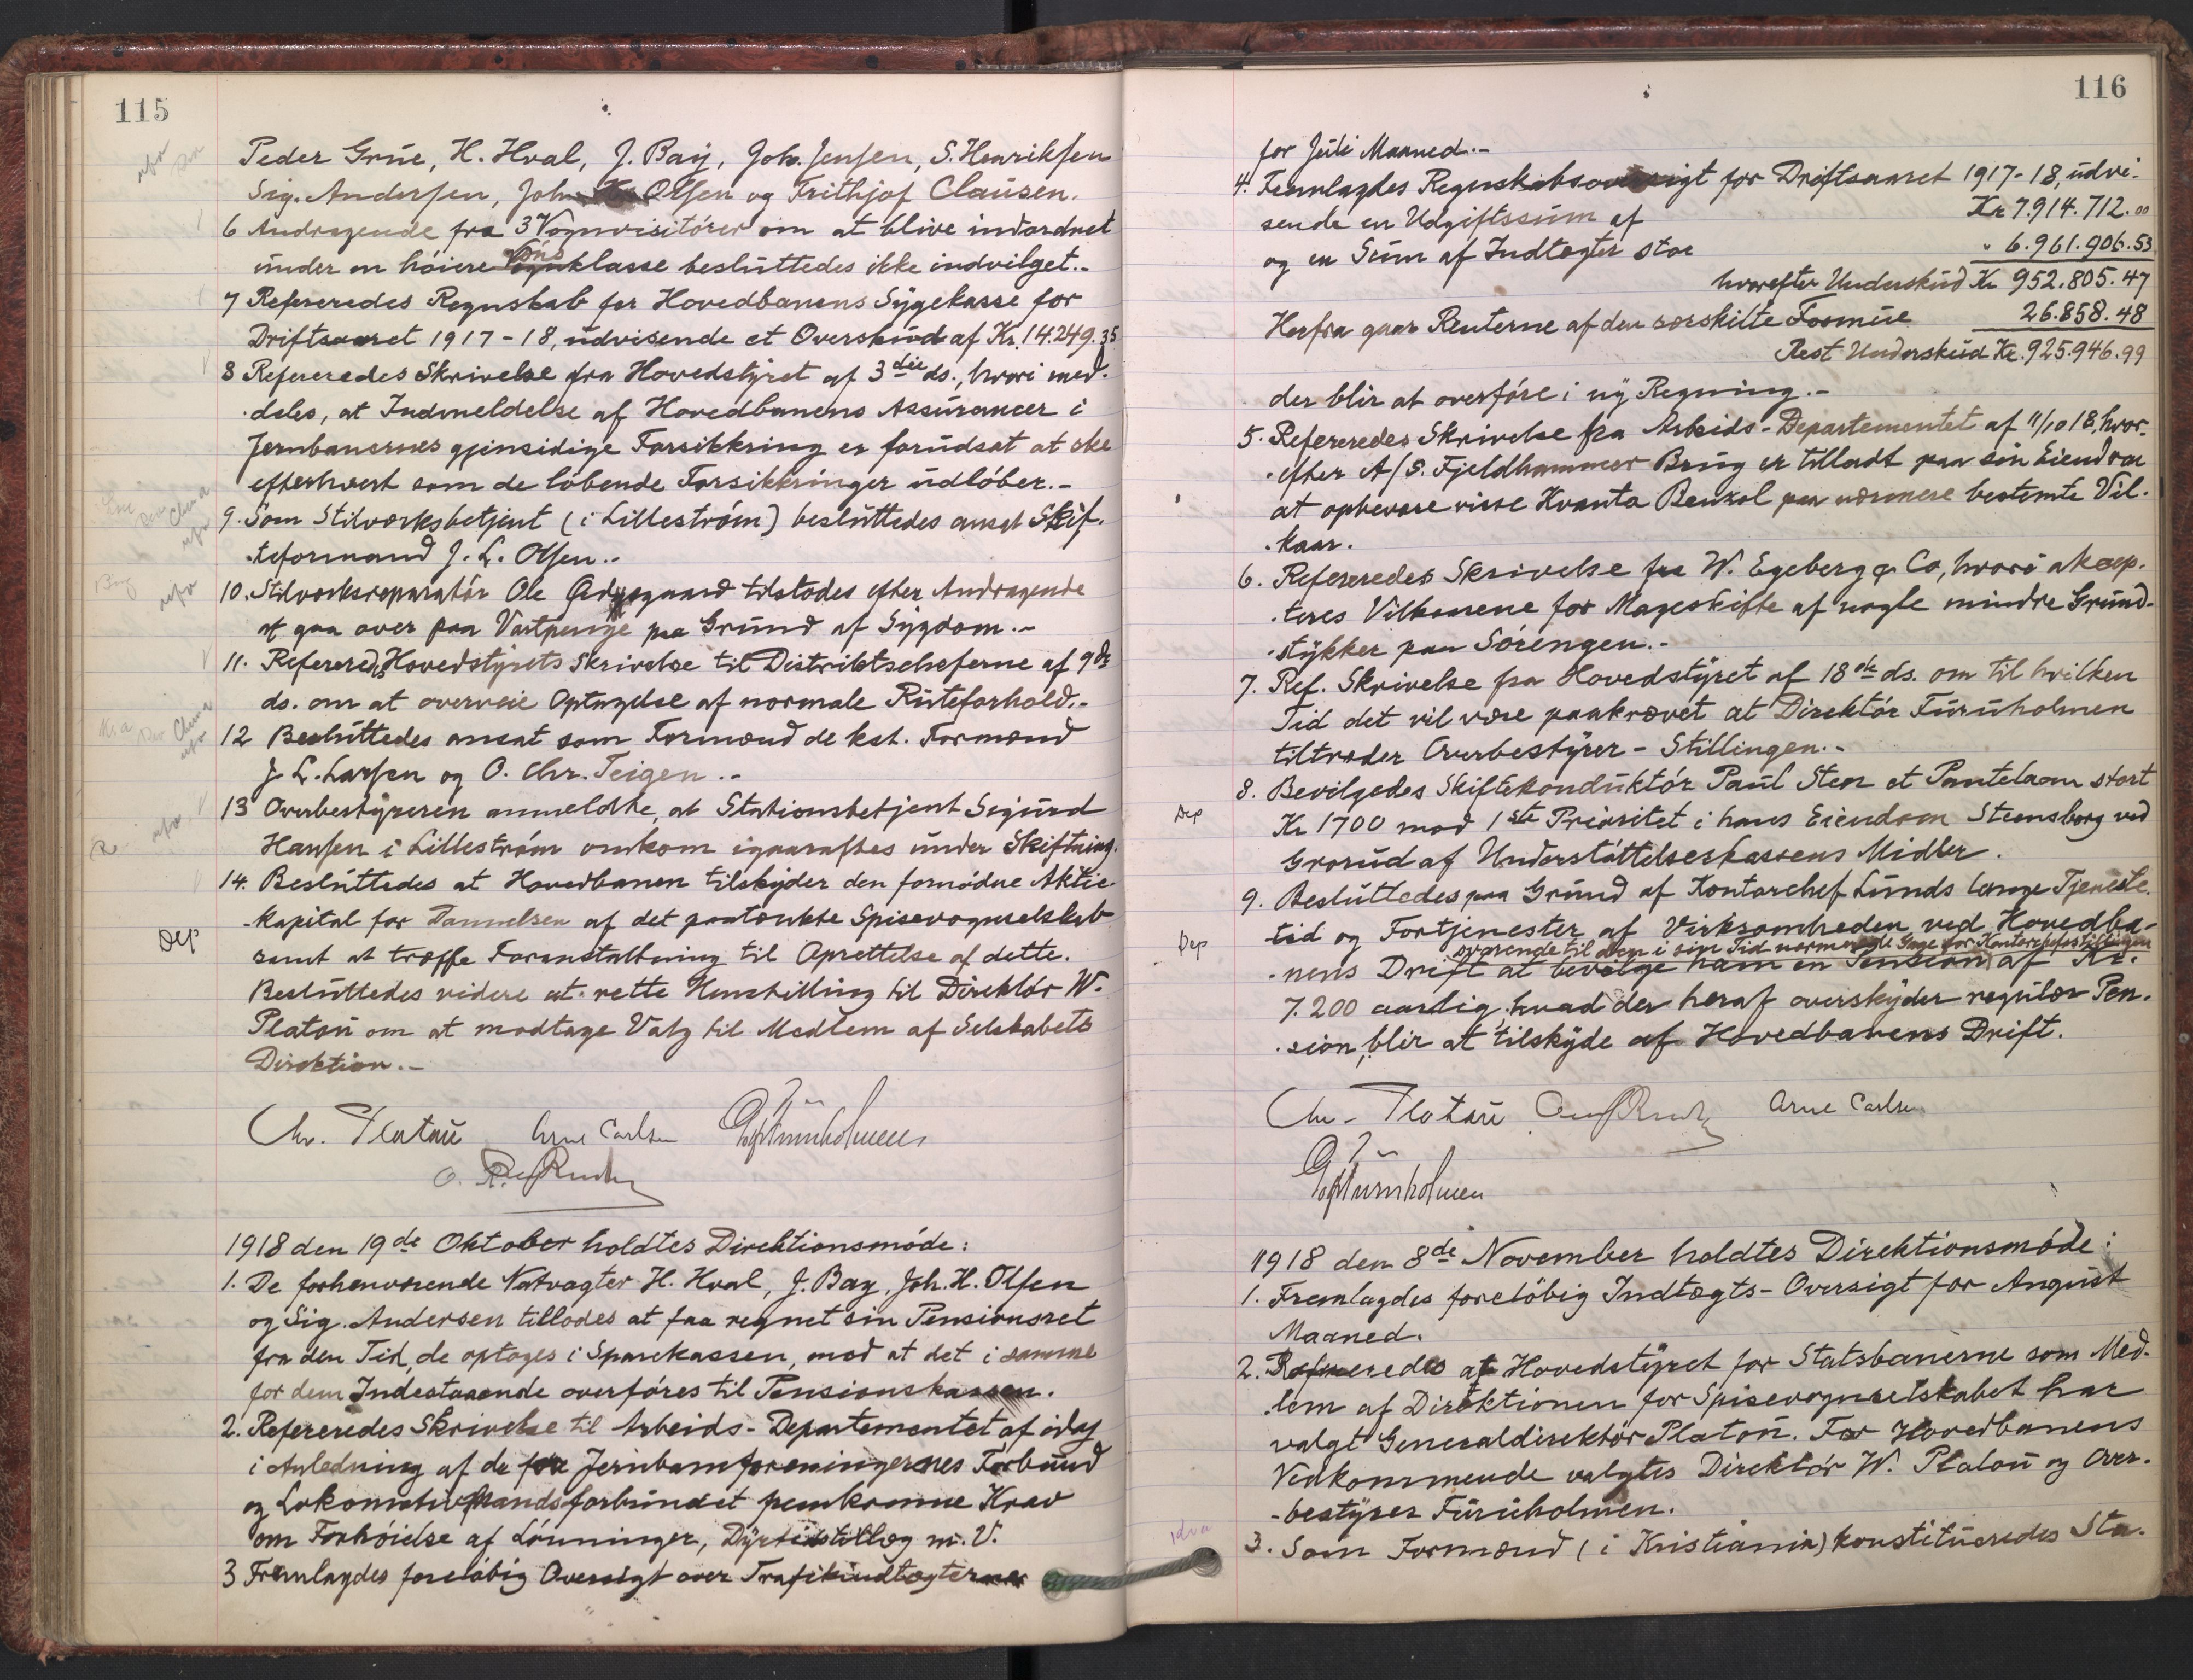 115
Peder Grue, H. Hval, J. Bay, Joh. Jensen, S. Henriksen
Sig. Andersen, Joh. Olsen og Frithjof Clausen.
6 Andragende fra 3 Vognvisitører om at blive indordnet
under en høiere Lønsklasse besluttedes ikke indvilget.-
7 Refereredes Regnskab for Hovedbanens Sygekasse for
Driftsaaret 1917-18, udvisende et Overskud af Kr. 14.249.35
8 Refereredes Skrivelse fra Hovedstyret af 3die ds., hvori med-
deles, at Indmeldelse af Hovedbanens Assurancer i
Jernbanernes gjensidige Forsikkring er forudsat at ske
efterhvert som de løbende Forsikkringer udløber.-
9. Som Stilverksbetjent (i Lillestrøm) besluttedes ansat Skif-
teformand J. L. Olsen.-
10. Stilverksreparatør Ole Ødegaard tilstodes efter Andragende
at gaa over paa Vartpenge paa Grund af Sygdom.-
11. Refereredes Hovedstyrets Skrivelse til Distriktscheferne af 9de
ds. om at overveie Optagelse af normale Ruteforhold.-
12 Besluttedes ansat som Formænd de kst. Formænd
J. L. Larsen og O. Chr. Teigen.-
13 Overbestyreren anmeldte, at Stationsbetjent Sigurd
Hansen i Lillestrøm omkom igaaraftes under Skiftning.
14. Besluttedes at Hovedbanen tilskyder den fornødne Aktie-
kapital for Dannelsen af det paatænkte Spisevognselskab
Dep
samt at træffe Foranstaltning til Oprettelse af dette.
Besluttedes videre at rette Henstilling til Direktør W.
Platou om at modtage Valg til Medlem af Selskabets
Direktion.-
Chr. Platou Arne Carlsen Furuholmen
1918 den 19de Oktober holdtes Direktionsmøde:
1. De forhenværende Natvagter H. Hval, J. Bay, Joh. H. Olsen
og Sig. Andersen tillodes at faa regnet sin Pensionsret
fra den Tid, de optoges i Sparekassen, mod at det i samme
for dem Indestaaende overføres til Pensionskassen.
2. Refereredes Skrivelse til Arbeids-Departementet af idag
i Anledning af de fra Jernbaneforeningernes Forbund
og Lokomotivmandsforbundet fremkomne Krav
om Forhøielse af Lønninger, Dyrtidstillæg m.V.
3 Fremlagdes foreløbig Oversigt over Trafikindtægterne
116
for Juli Maaned.-
4. Fremlagdes Regnskabsoversigt for Driftsaaret 1917-18, udvi-
sende en Udgiftssum af Kr 7.914.712.00
og en Sum af Indtægter stor " 6.961.906.53
hvorefter Underskud Kr 952.805.47
Herfra gaar Renterne af den særskilte Formue 26.858.48
Rest Underskud Kr. 925.946.99
der blir at overføre i ny Regning.-
5. Refereredes Skrivelse fra Arbeids-Departementet af 11/10 18, hvor-
efter A/S. Fjeldhammer Brug er tilladt paa sin Eiendom
at opbevare visse Kvanta Benzol paa nærmere bestemte Vil-
kaar.
6. Refereredes Skrivelse fra W. Egeberg & Co, hvori aksep-
teres Vilkaarene for Mageskifte af nogle mindre Grund-
stykker paa Sørengen.-
7. Ref. Skrivelse fra Hovedstyret af 18de ds. om til hvilken
Tid det vil være paakrævet at Direktør Furuholmen
tiltræder Overbestyrer-Stillingen.-
8. Bevilgedes Skiftekonduktør Paul Sten et Pantelaan stort
Dep
Kr 1700 mod 1ste Prioritet i hans Eiendom Steensborg ved
Grorud af Understøttelseskassens Midler.
9. Besluttedes paa Grund af Kontorchef Lunds lange Tjeneste-
tid og Fortjenester af Virksomheden ved Hovedba-
Dep
svarende til den i sin Tid normerede Gage for Kontorchefsstillingen
nens Drift at bevilge ham en Pension af Kr.
7.200 aarlig, hvad der heraf overskyder regulær Pen-
sion, blir at tilskyde af Hovedbanens Drift.
Chr. Platou Arne Carlsen
Furuholmen
1918 den 8de November holdtes Direktionsmøde:
1. Fremlagdes foreløbig Indtægts-Oversigt for August
Maaned.
2. Refereredes at Hovedstyret for Statsbanerne som Med-
lem af Direktionen for Spisevognselskabet har
valgt Generaldirektør Platou. For Hovedbanens
Vedkommende valgtes Direktør W. Platou og Over-
bestyrer Furuholmen.
3. Som Formænd (i Kristiania) konstitueredes Sta-